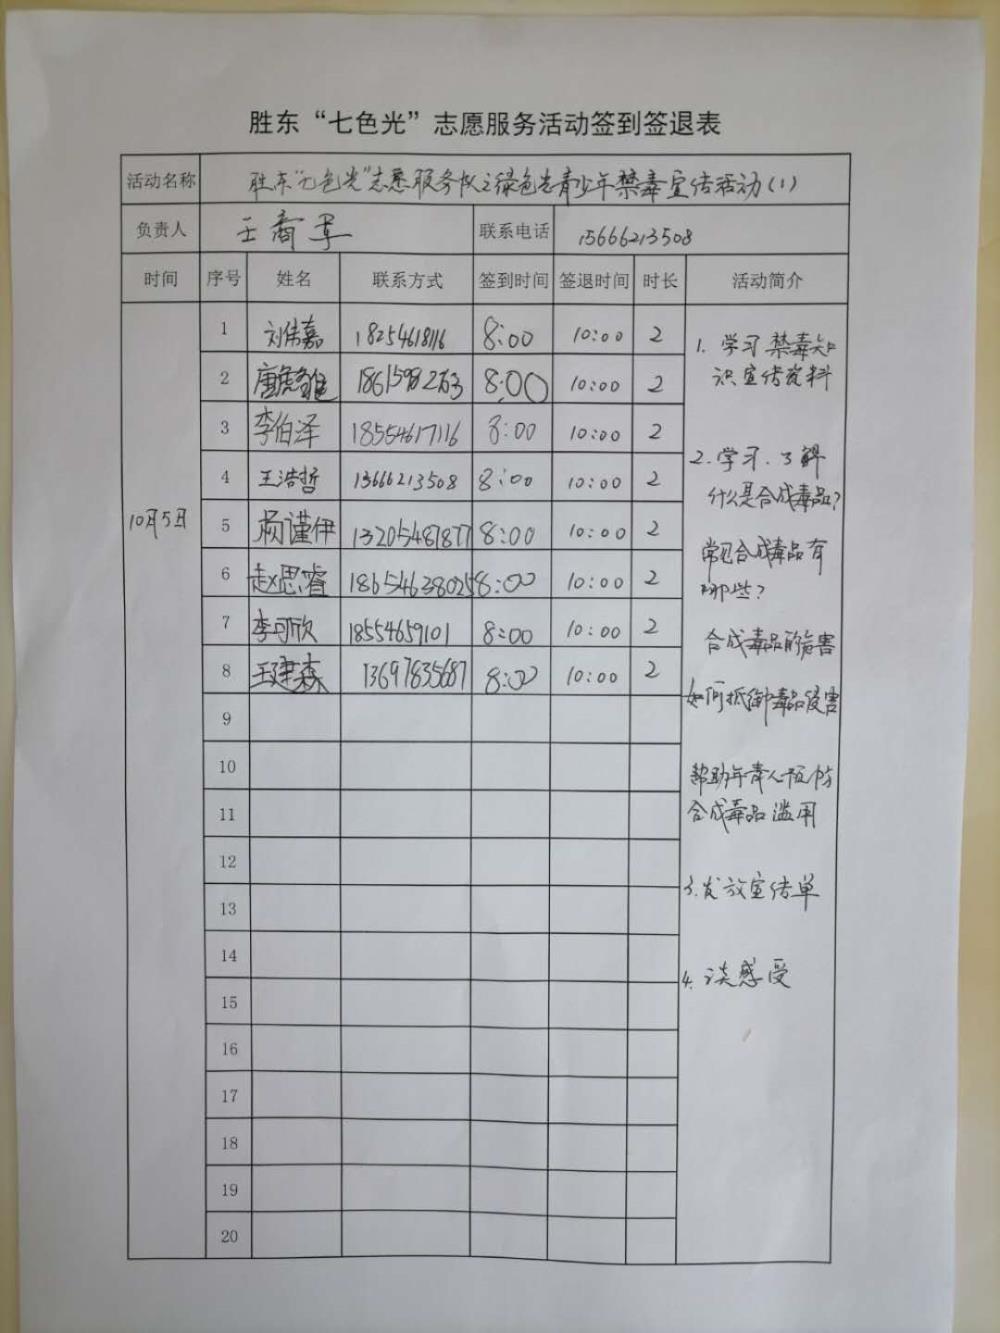 胜东“七色光”志愿服务活动签到签退表
活动名称 胜东“七色光”志愿服务队之绿色光青少年禁毒宣传活动(1)
负责人 王 联系电话 15666213508
时间 序号 姓名 联系方式 签到时间 签退时间 时长 活动简介
10月5日
1 刘倩嘉 18254618116 8:00 10:00 2
2 唐 18615982763 8:00 10:00 2
3 李伯泽 18554617116 8:00 10:00 2
4 王浩哲 13666213508 8:00 10:00 2
5 杨谨伊 13205487877 8:00 10:00 2
6 赵思睿 18654638025 8:00 10:00 2
7 李可欣 18554659101 8:00 10:00 2
8 王建森 13697835687 8:00 10:00 2
9
10
11
12
13
14
15
16
17
18
19
20
1. 学习禁毒知
识宣传资料
2.学习.了解
什么是合成毒品?
常见合成毒品有
哪些?
合成毒品的危害
如何抵御毒品侵害
帮助年青人预防
合成毒品滥用
3.发放宣传单
4.谈感受